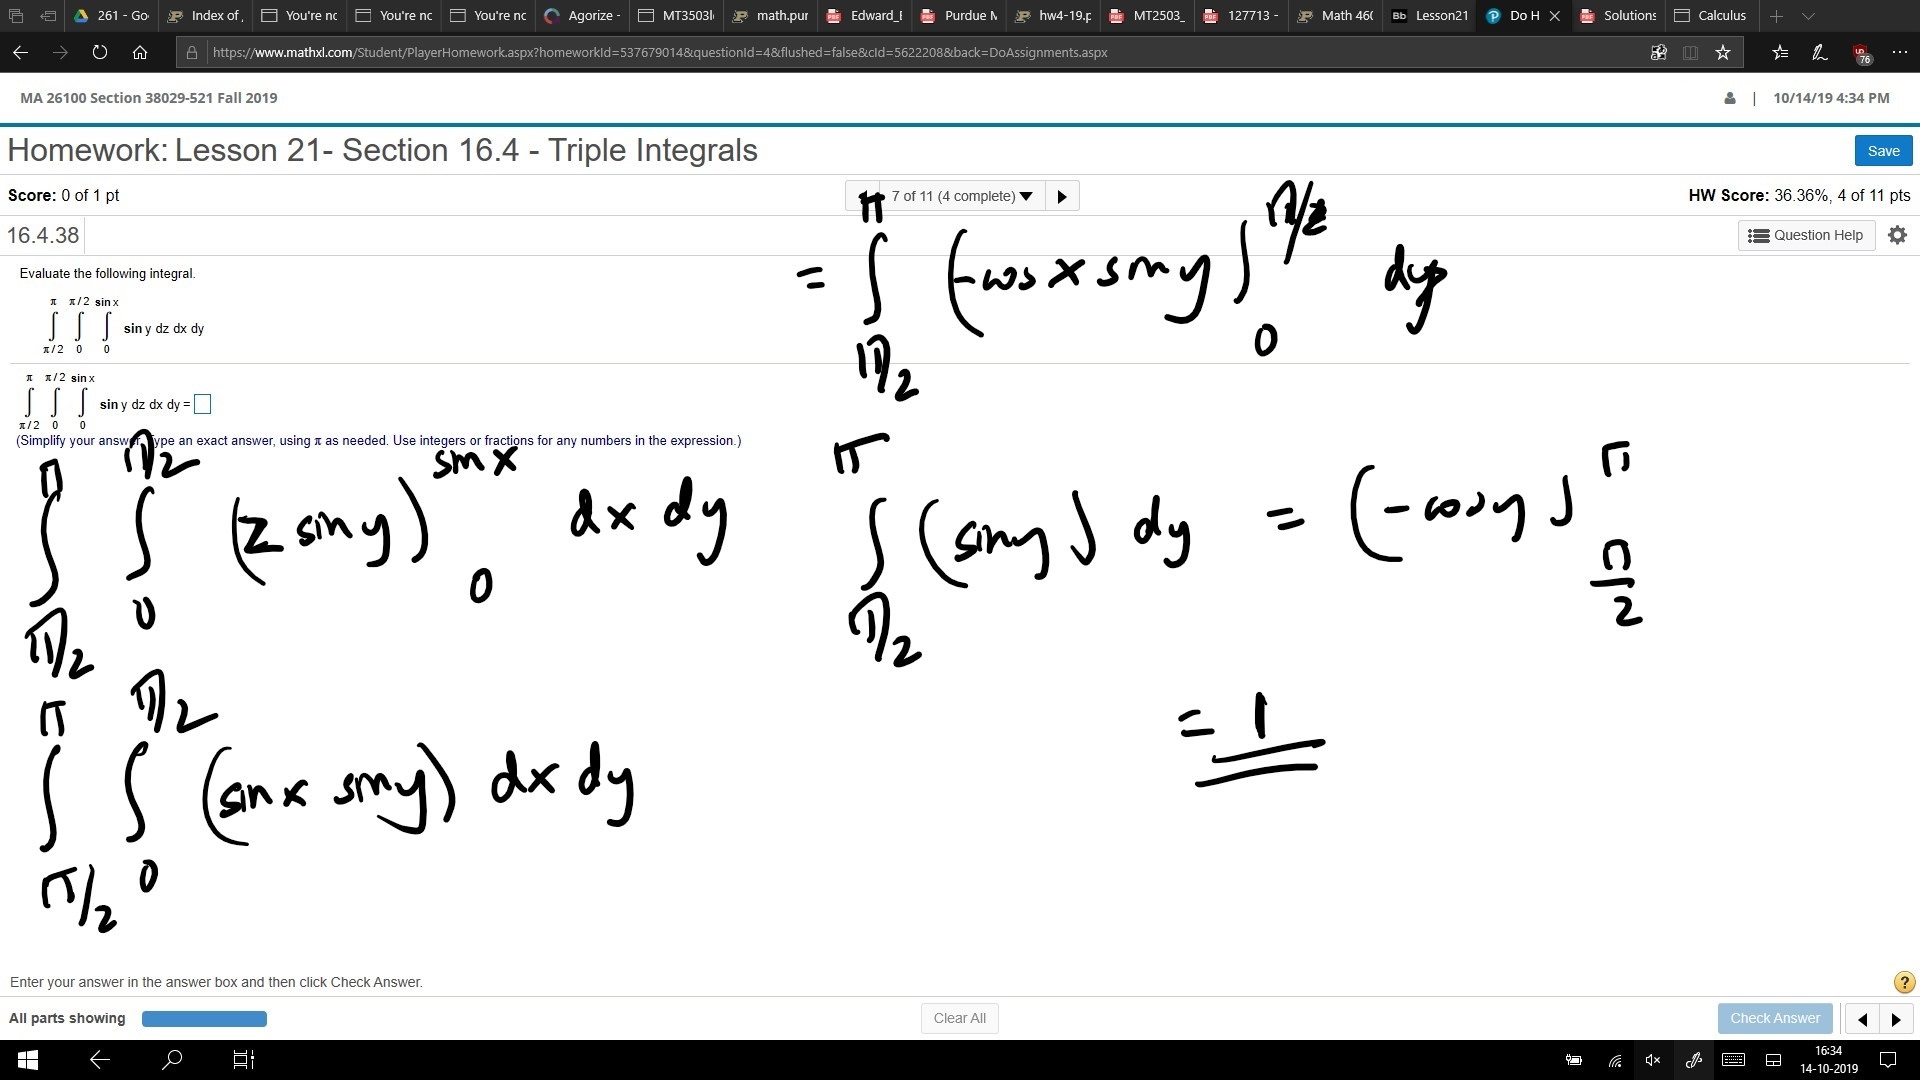 261 - Go
Index of
You're nc
You're nc
You're nc
Agorize -
MT3503l
math.pur
Edward_E
Purdue M
hw4-19.p
MT2503_
127713 -
Math 46(
Bb Lesson21
Do H
Solutions
Calculus
https://www.mathxl.com/Student/PlayerHomework.aspx?homeworkId=537679014&questionId=4&flushed=false&cId=5622208&back=DoAssignments.aspx
76
MA 26100 Section 38029-521 Fall 2019
| 10/14/19 4:34 PM
Homework: Lesson 21- Section 16.4 - Triple Integrals
Save
Score: 0 of 1 pt
7 of 11 (4 complete)
HW Score: 36.36%, 4 of 11 pts
16.4.38
Question Help
Evaluate the following integral.
π π/2 sin x
∫ ∫ ∫ sin y dz dx dy
π/2 0 0
π π/2 sin x
∫ ∫ ∫ sin y dz dx dy =
π/2 0 0
(Simplify your answer. Type an exact answer, using π as needed. Use integers or fractions for any numbers in the expression.)
π π/2 sin x
∫ ∫ (z sin y) dx dy
π/2 0 0
π π/2
∫ ∫ (sin x sin y) dx dy
π/2 0
π π/2
= ∫ (-cos x sin y] dy
π/2 0
π π
∫ (sin y) dy = (-cos y]
π/2 π/2
= 1
Enter your answer in the answer box and then click Check Answer.
?
All parts showing
Clear All
Check Answer
16:34
14-10-2019